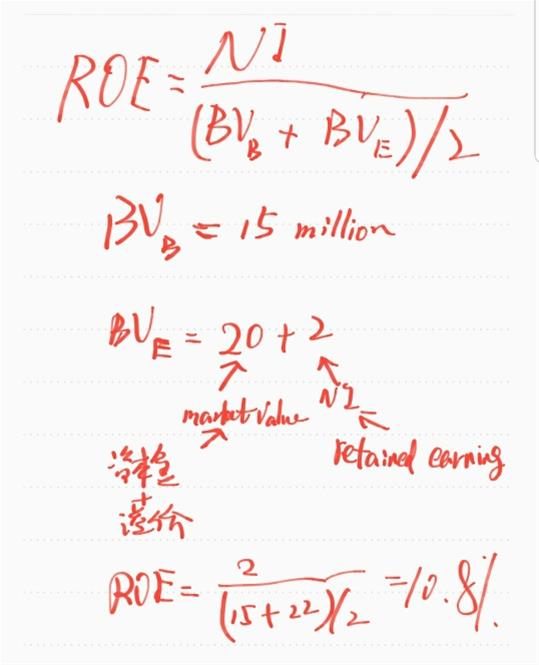 ROE = NI / (BV_B + BV_E)/2
BV_B = 15 million
BV_E = 20 + 2
market value
NI
retained earning
+
溢价
ROE = 2 / (15+22)/2 = 10.8%